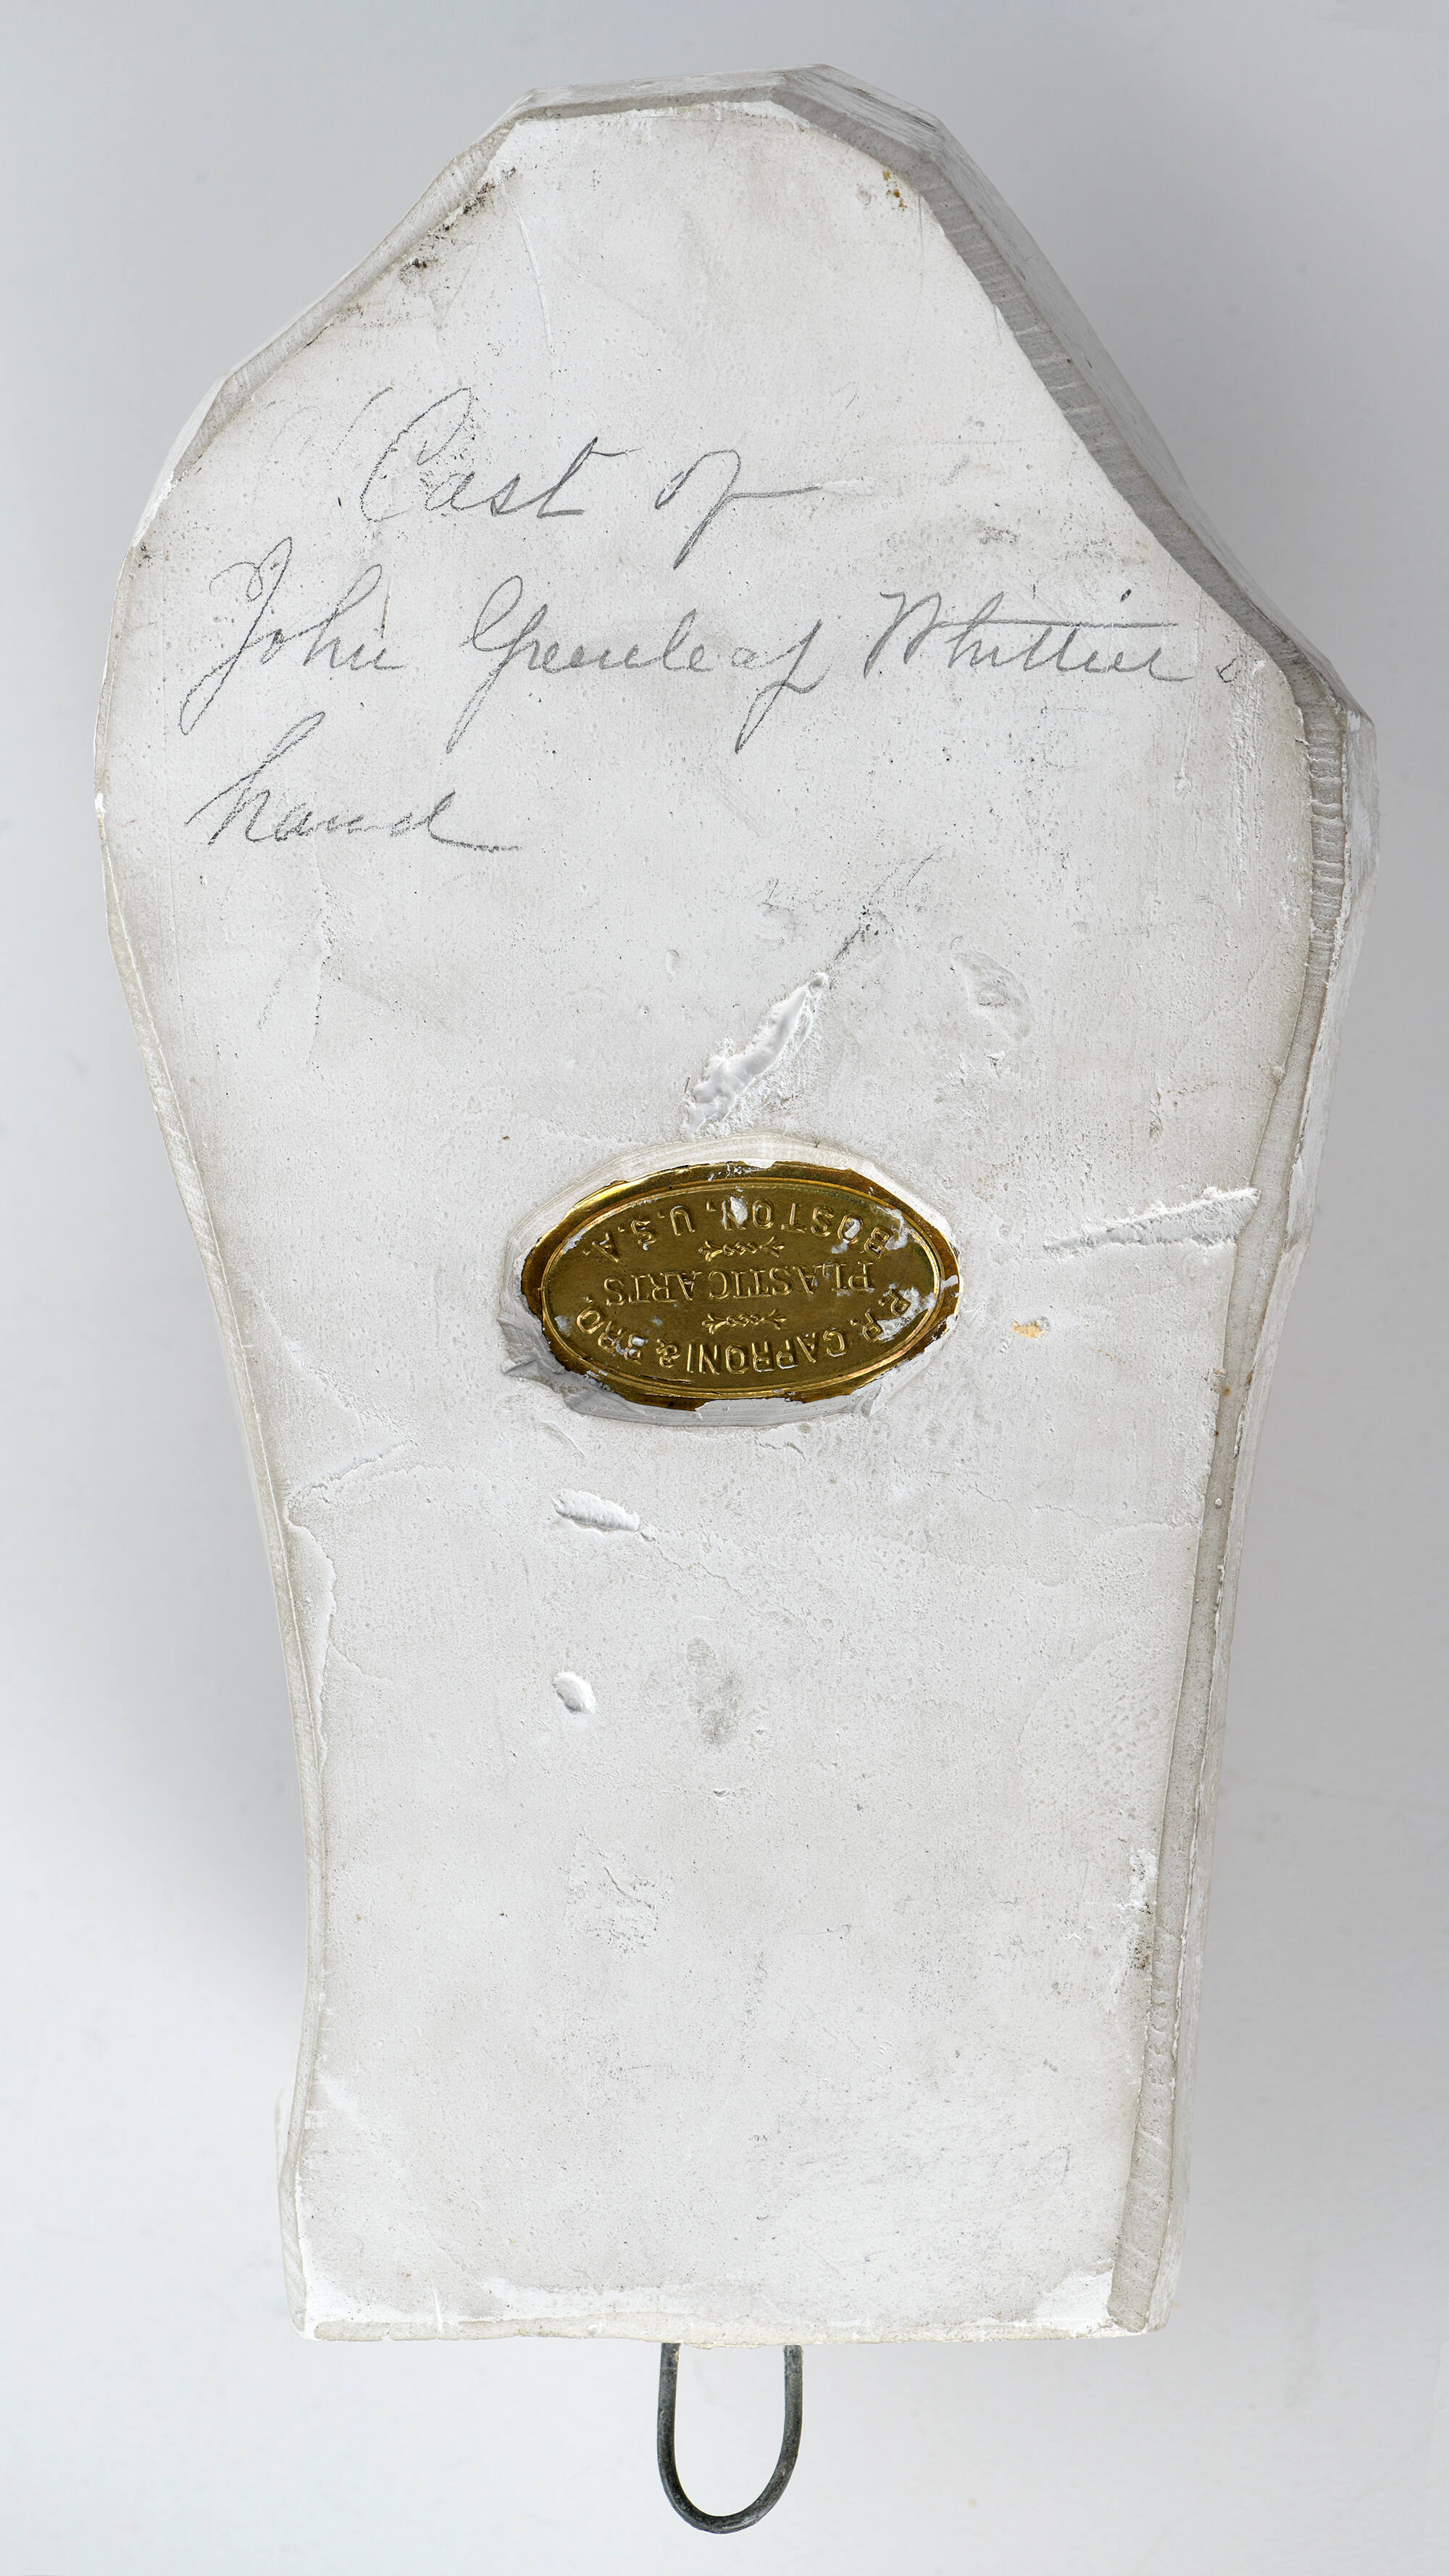 Cast of
John Greenleaf Whittier's
hand
P. P. CAPRONI & BRO.
PLASTIC ARTS.
BOSTON, U.S.A.